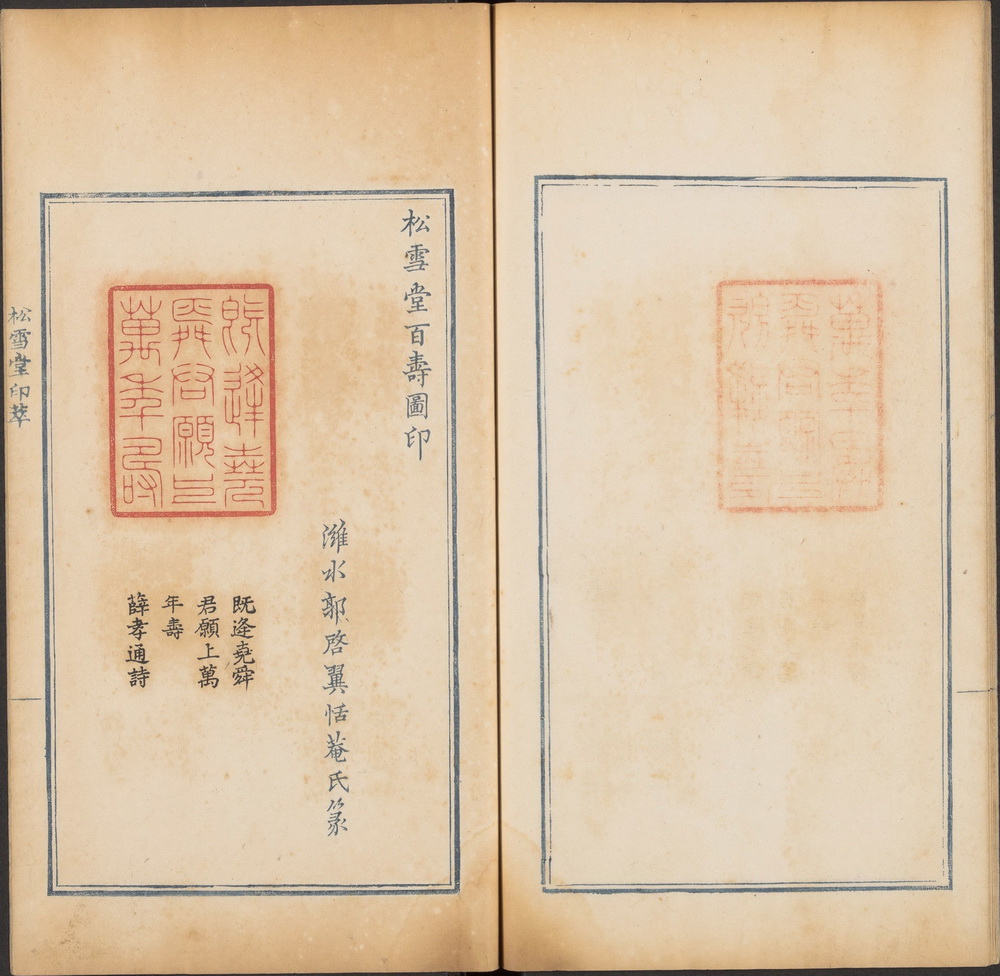 松雪堂百壽圖印
濰水郭啓翼恬菴氏篆
既逢堯舜君願上萬年壽
既逢堯舜
君願上萬
年壽
薛孝通詩
松雪堂印萃